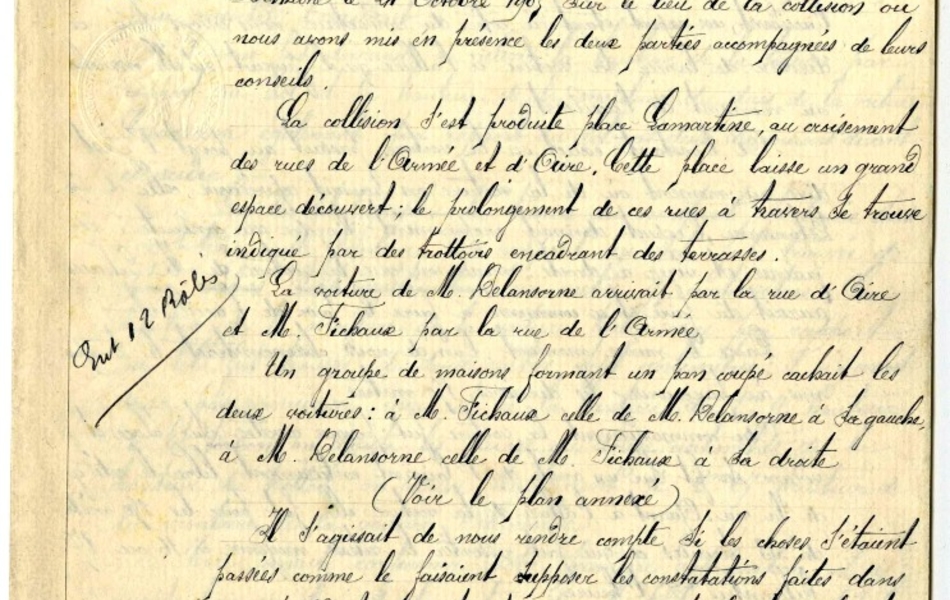 le 21 Octobre 1905 sur le lieu de la collision où
nous avons mis en présence les deux parties accompagnées de leurs
conseils.
La collision s'est produite place Lamartine, au croisement
des rues de l'Armée et d'Aire. Cette place laisse un grand
espace découvert ; le prolongement de ces rues à travers se trouve
indiqué par des trottoirs encadrant des terrasses.
La voiture de M. Delansorne arrivait par la rue d'Aire
et M. Fichaux par la rue de l'Armée
Un groupe de maisons formant un pan coupé cachait les
deux voitures : à M. Fichaux celle de M. Delansorne à sa gauche,
à M. Delansorne celle de M. Fichaux à sa droite
(Voir le plan annexé)
Il s'agissait de nous rendre compte si les choses s'étaient
passées comme le faisaient supposer les constatations faites dans
12 Rôles